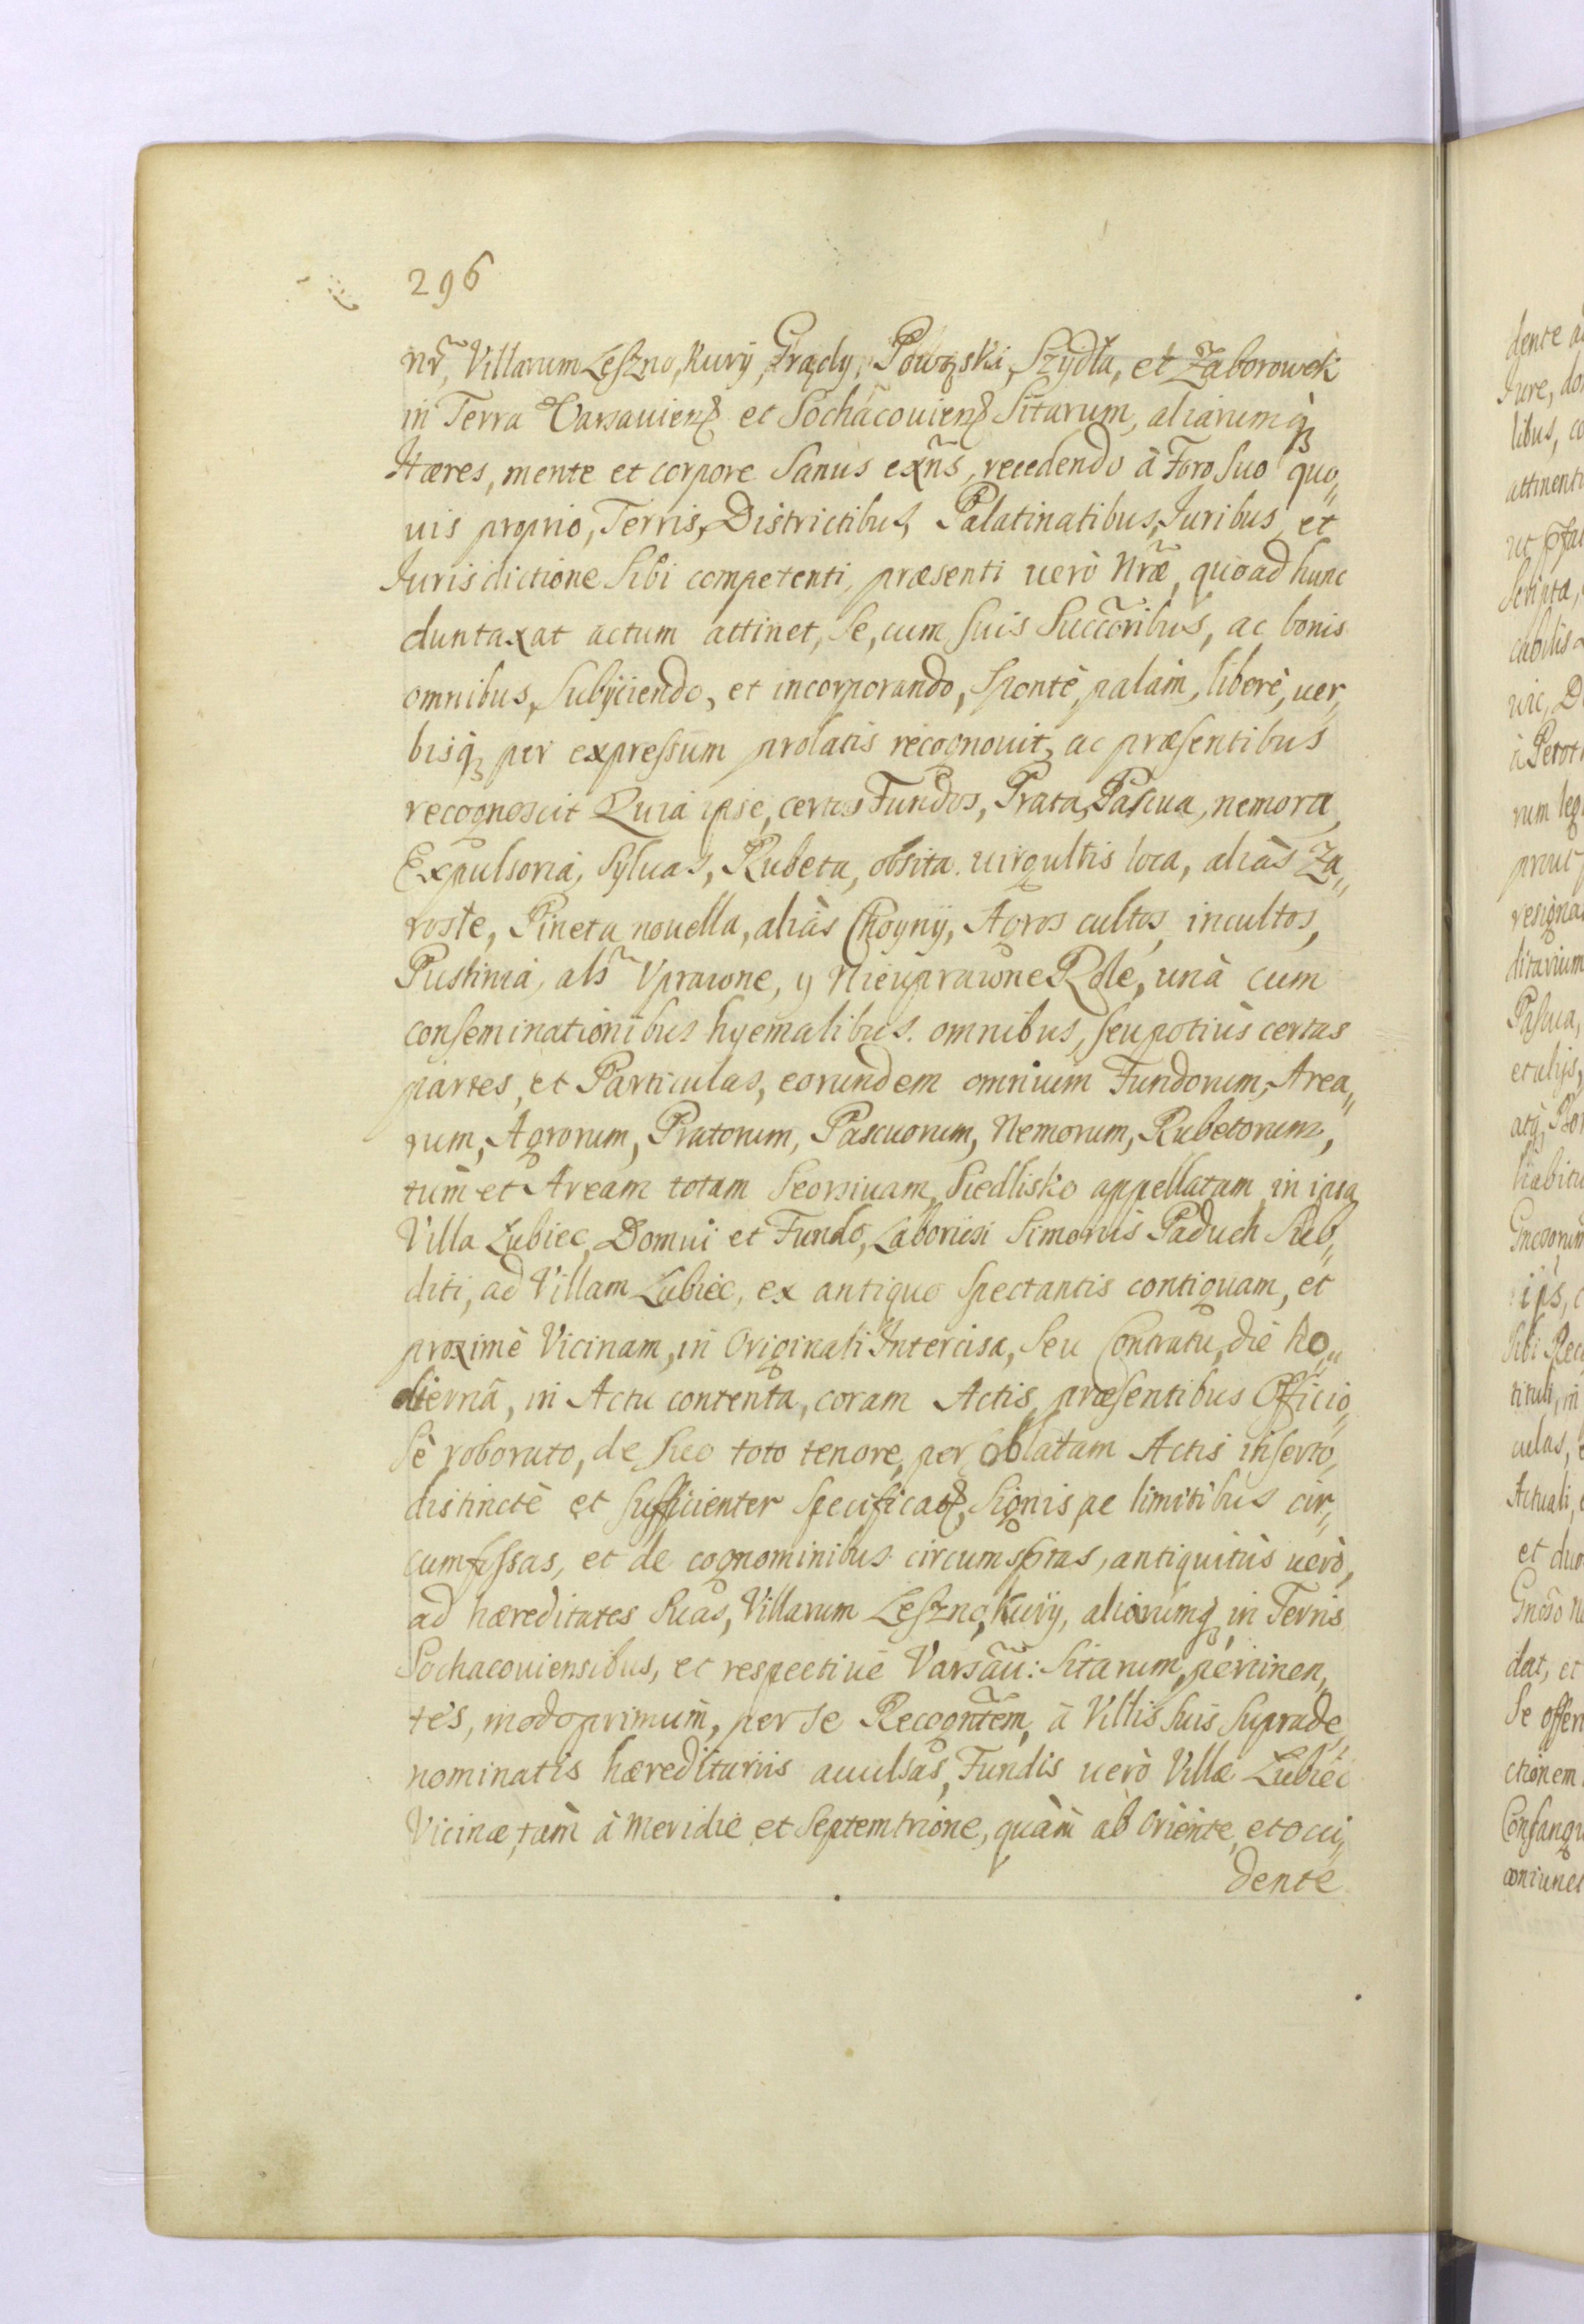 296
nr̃, Villarum Leszno, Kury, Grądy, Powązski, Szydła, et Zaborowek
in Terra Varsauienß et Sochacouienß Sitarum, aliarumqꝫ
Hæres, mente et corpore Sanus exñs, recedendo à Foro Suo quo„
uis proprio, Terris, Districtibus, Palatinatibus, Iuribus et
Iurisdictione Sibi competenti, præsenti uerò Nræ̃, quoad hunc
duntaxat actum attinet, Se, cum Suis Succõribus, ac bonis
omnibus, Subÿciendo, et incorporando, Sponte, palàm, liberè, uer„
bisqꝫ per expressum prolatis recognouit, ac præsentibus
recognoscit Quia ipse, certos Fundos, Prata, Pascua, nemora,
Expulsoria, Syluas, Rubeta, obsita uirgultis loca, aliàs Za„
roste, Pineta nouella, aliàs Choyny, Agros cultos, incultos,
Pustinia, als̃ Vprawne, y Nieuprawne Role, unà cum
conseminationibus hyemalibus omnibus, seu potiùs certas
partes, et Particulas, eorundem omnium Fundorum, Area„
rum, Agrorum, Pratorum, Pascuorum, Nemorum, Rubetorum,
tùm et Aream totam Seorsiuam, Siedlisko appellatam in ipsa
Villa Łubiec, Domui et Fundo, Laboriosi Simonis Paduch Sub„
diti, ad Villam Łubiec, ex antiquo Spectantis contiguam, et
proximè Vicinam, in Originali Intercisa, Seu Contractu, die ho„
diernâ, in Actu contenta, coram Actis præsentibus Officio„
sè roborato, de Suo toto tenore, per Oblatam Actis inserto,
distinctè et sufficienter Specificatß, Signis ac limitibus cir„
cumfossas, et de cognominibus circumsptas, antiquitùs uerò,
ad hæreditates Suas, Villarum Leszno, Kury, aliorumqꝫ in Terris
Sochacouiensibus, et respectiuè Varsãu: Sitarum, pertinen„
tes, modo primùm, per Se Recogñtem, à Villis Suis Suprade„
nominatis hæreditariis auulsas, Fundis uerò Villæ Łubiec
Vicinæ, tàm à Meridie et Septemtrione, quàm ab Oriente et occi„
dente